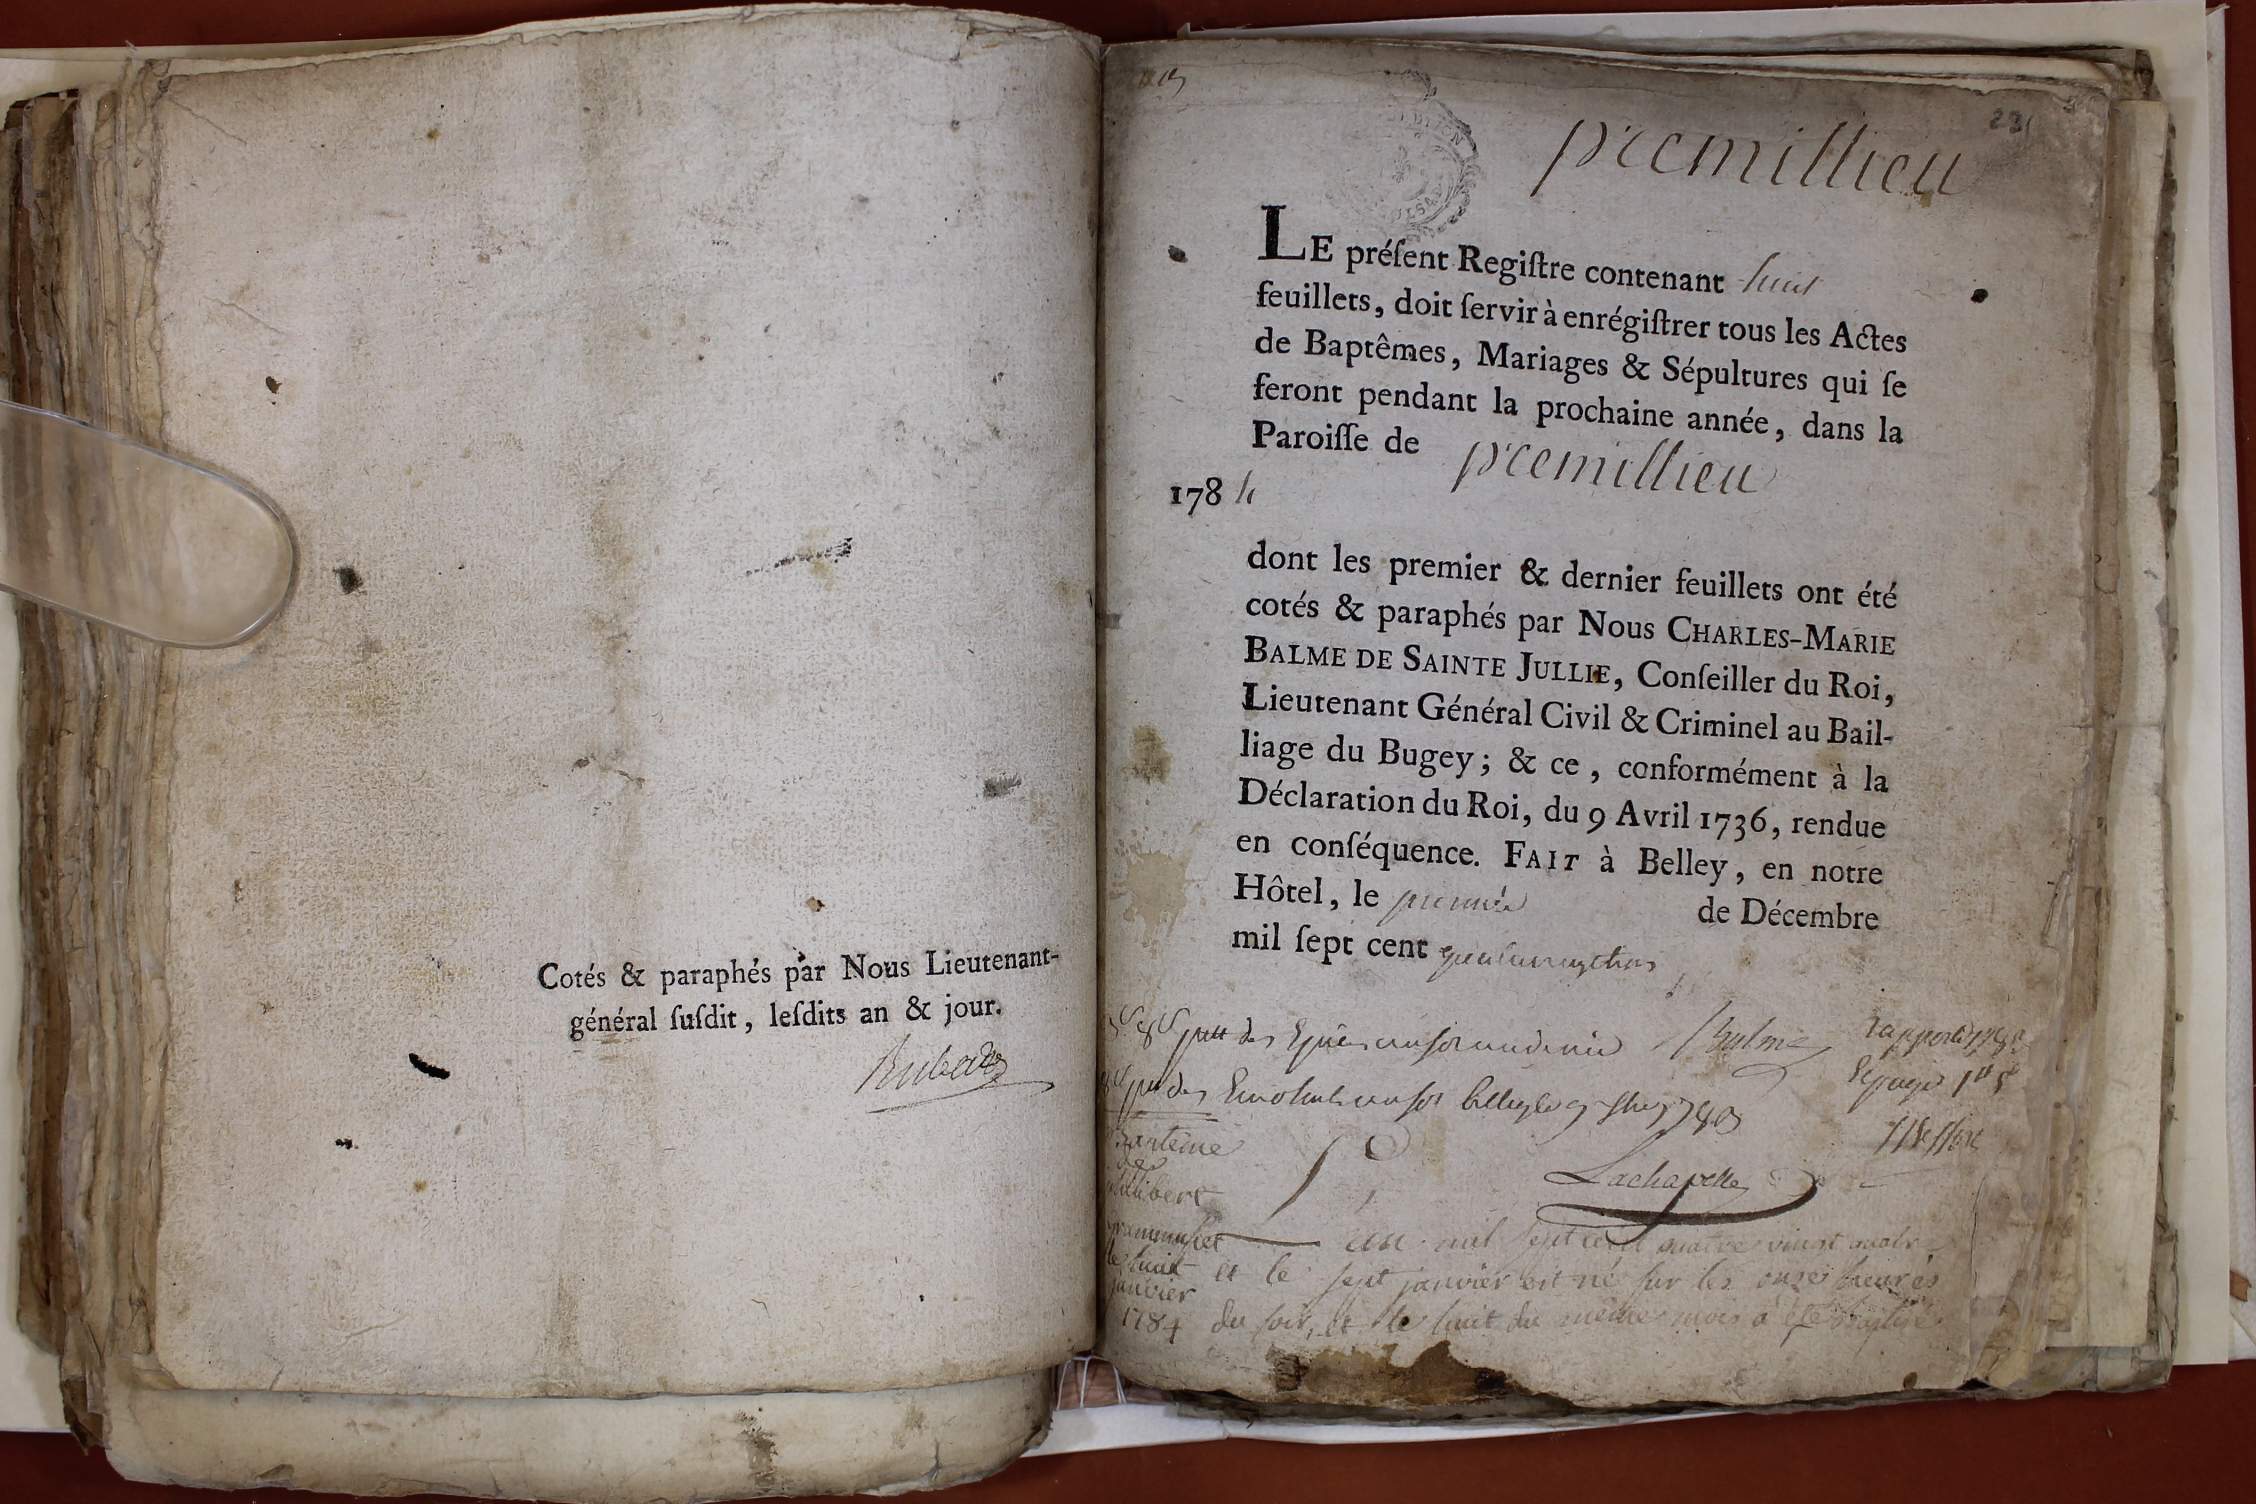 Cotés & paraphés par Nous Lieutenant-
général ſuſdit, leſdits an & jour.
premillieu
LE préſent Regiſtre contenant huit
feuillets, doit ſervir à enrégiſtrer tous les Actes
de Baptêmes, Mariages & Sépultures qui ſe
feront pendant la prochaine année, dans la
Paroiſſe de premillieu
1784
dont les premier & dernier feuillets ont été
cotés & paraphés par Nous CHARLES-MARIE
BALME DE SAINTE JULLIE, Conſeiller du Roi,
Lieutenant Général Civil & Criminel au Bail-
liage du Bugey; & ce, conformément à la
Déclaration du Roi, du 9 Avril 1736, rendue
en conſéquence. FAIT à Belley, en notre
Hôtel, le premier de Décembre
mil ſept cent
Balme
Lachapelle
Bartême
de
le huit
janvier
1784
mil sept cent quatre vingt quatre
et le sept janvier est né sur les onze heures
du soir, et le huit du même mois a été baptisé